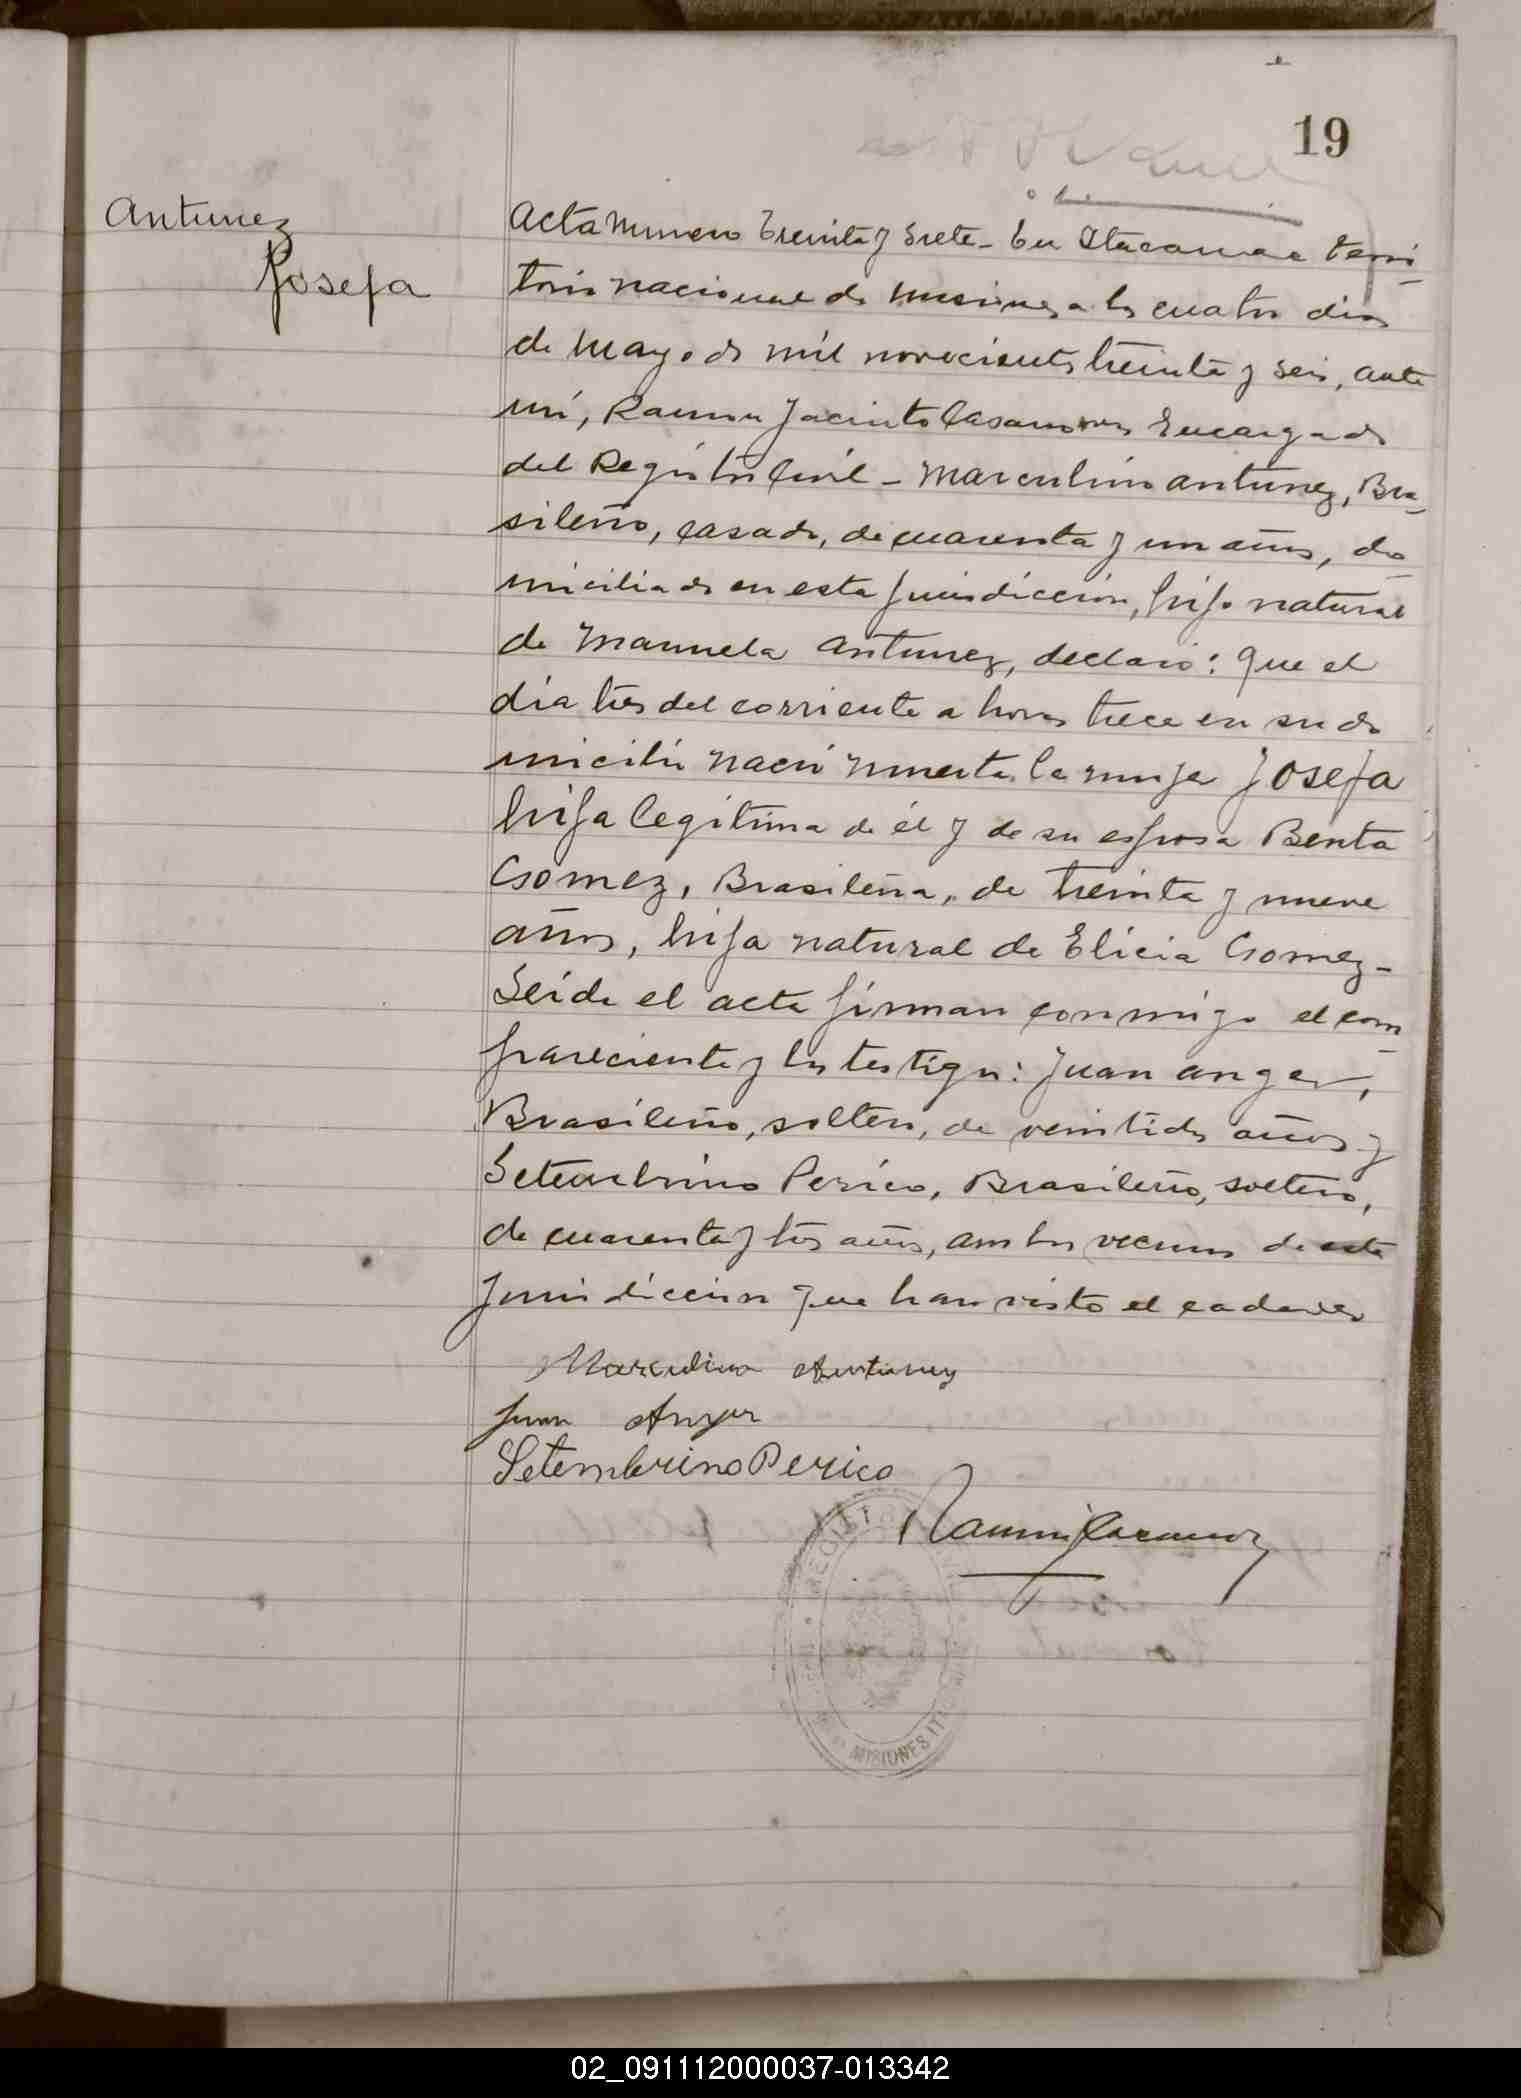 19
Antunez
Josefa
Acta numero treinta y siete - En Itacaruare terri-
torio nacional de Misiones a los cuatro dias
de Mayo de mil novecientos treinta y seis, ante
mí, Ramon Jacinto Casanova Encargado
del Registro Civil - Marculino Antunez, Bra-
sileño, casado, de cuarenta y un años, do-
miciliado en esta jurisdicción, hijo natural
de Manuela Antunez, declaró: Que el
día tres del corriente a horas trece en su do
micilio nació muerta la mujer Josefa
hija legítima de él y de su esposa Benta
Gomez, Brasileña, de treinta y nueve
años, hija natural de Elicia Gomez -
Leida el acta firman conmigo el com-
pareciente y los testigos: Juan Anger,
Brasileño, soltero, de veintidos años y
Setembrino Perico, Brasileño, soltero,
de cuarenta y tres años, ambos vecinos de esta
jurisdiccion que han visto el cadaver
Marculino Antunez
Juan Anger
Setembrino Perico
Ramon J Casanova
REGISTRO
MISIONES
02_091112000037-013342